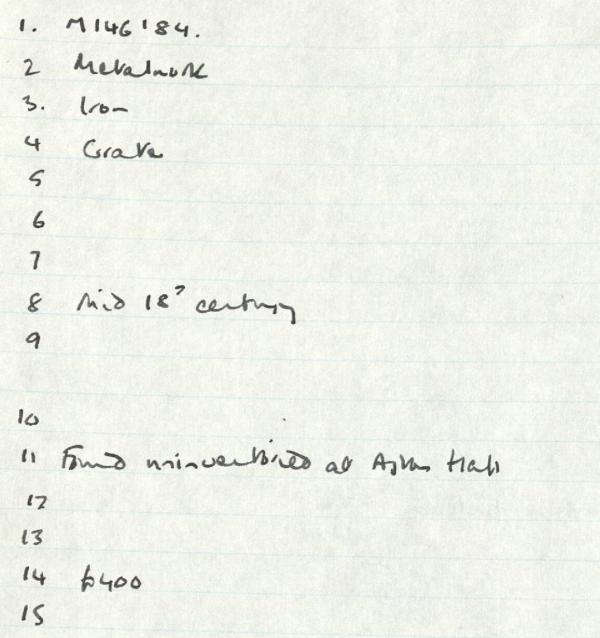 1. M146'84.
2 Metalwork
3. Iron
4 Grate
5
6
7
8 Mid 18? century
9
10
11 Found uninventoried at Aston Hall
12
13
14 £400
15